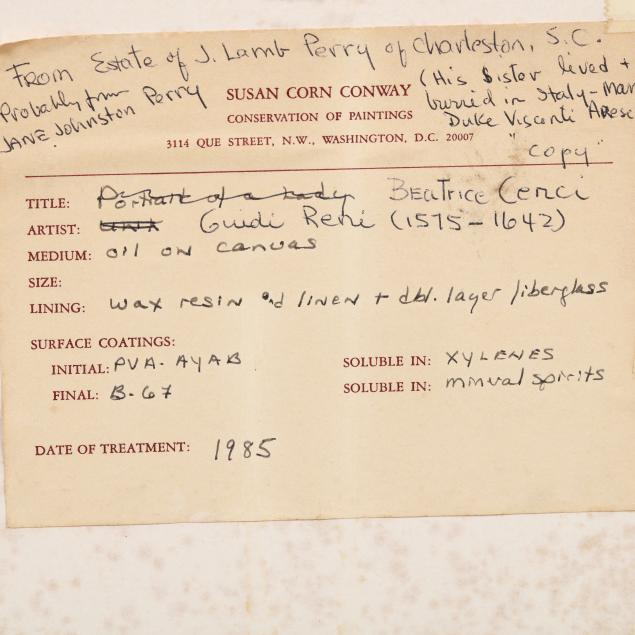 From Estate of J. Lamb Perry of Charleston, S.C.
Probably from
JANE Johnston Perry
(His Sister lived +
buried in Italy - Mar
Duke Visconti Arese
SUSAN CORN CONWAY
CONSERVATION OF PAINTINGS
3114 QUE STREET, N.W., WASHINGTON, D.C. 20007
"copy"
TITLE: Portrait of a Lady Beatrice Cenci
ARTIST: Guidi Reni (1575-1642)
MEDIUM: oil on canvas
SIZE:
LINING: wax resin and linen + dbl. layer fiberglass
SURFACE COATINGS:
INITIAL: PVA-AYAB SOLUBLE IN: XYLENES
FINAL: B-67 SOLUBLE IN: mineral spirits
DATE OF TREATMENT: 1985